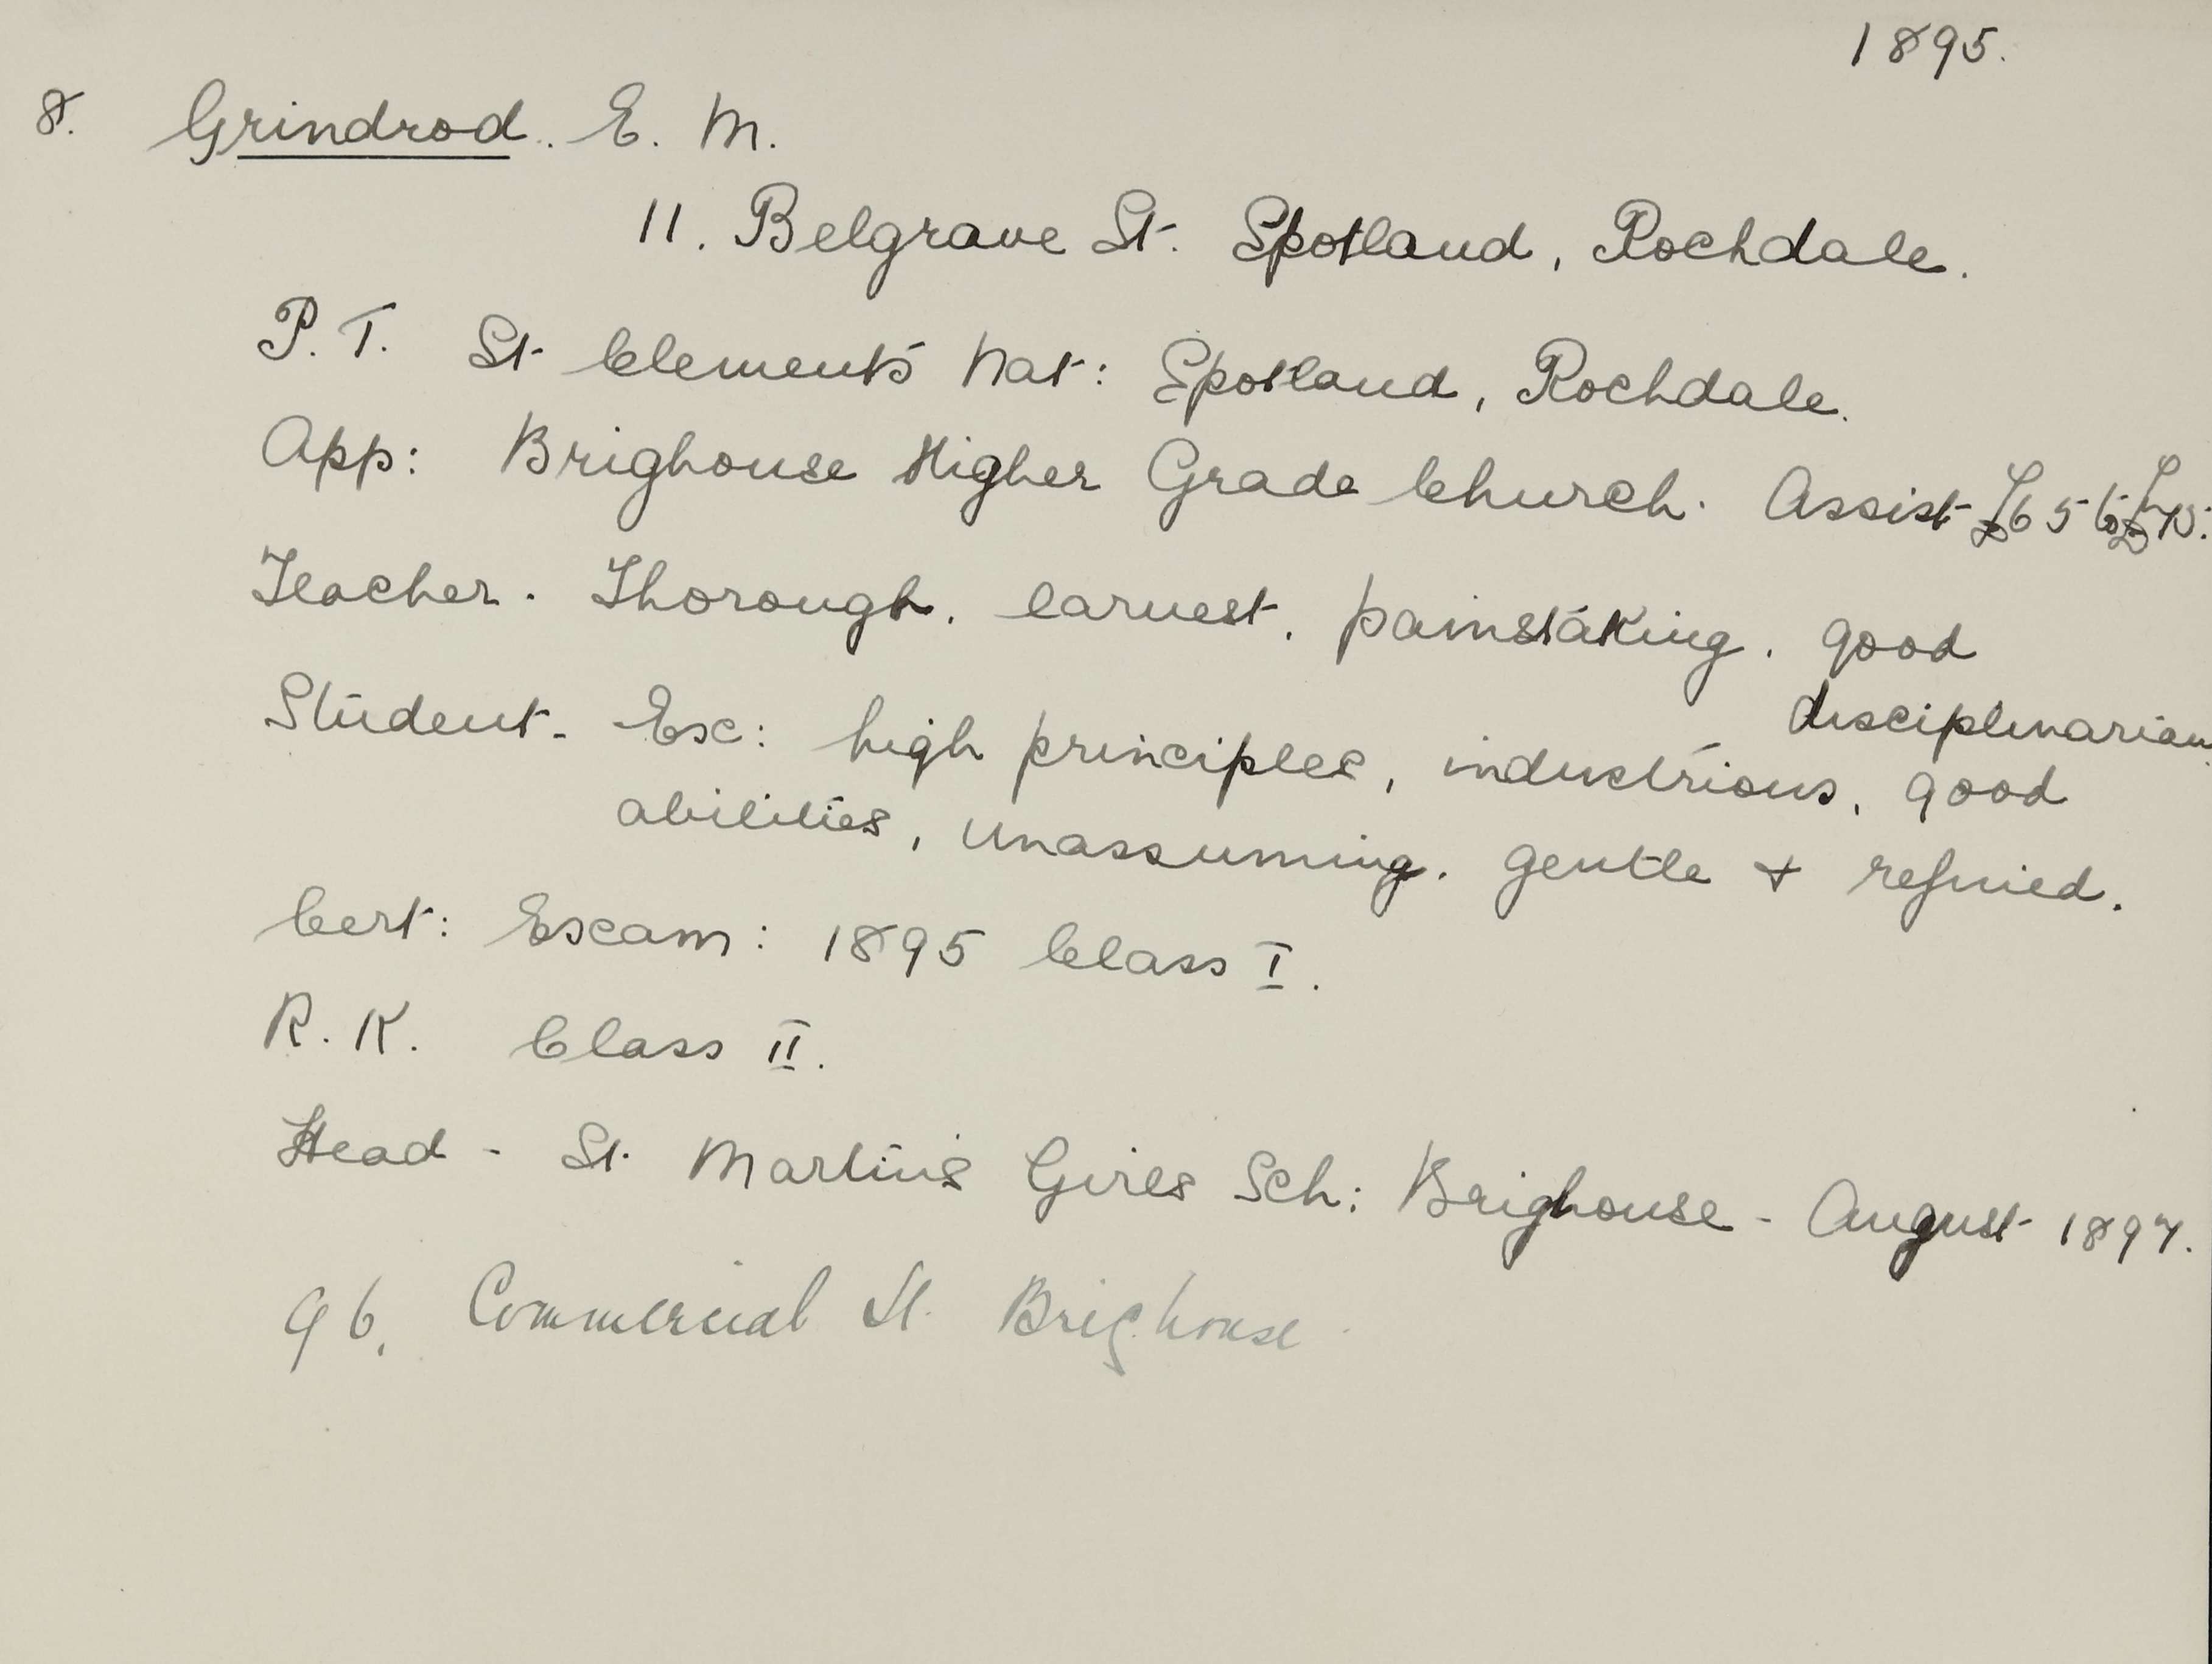 1895.
8. Grindrod. E. M.
11. Belgrave St. Spotland, Rochdale.
P.T. St Clement's Nat: Spotland, Rochdale.
App: Brighouse Higher Grade Church. Assist £65 to £75.
Teacher. Thorough, earnest, painstaking, good
disciplinarian.
Student - Exc: high principles, industrious, good
abilities, unassuming, gentle + refined.
Cert: Exam: 1895 Class I.
R.K. Class II.
Head - St. Martin's Girls Sch: Brighouse - August 1897.
96, Commercial St. Brighouse.